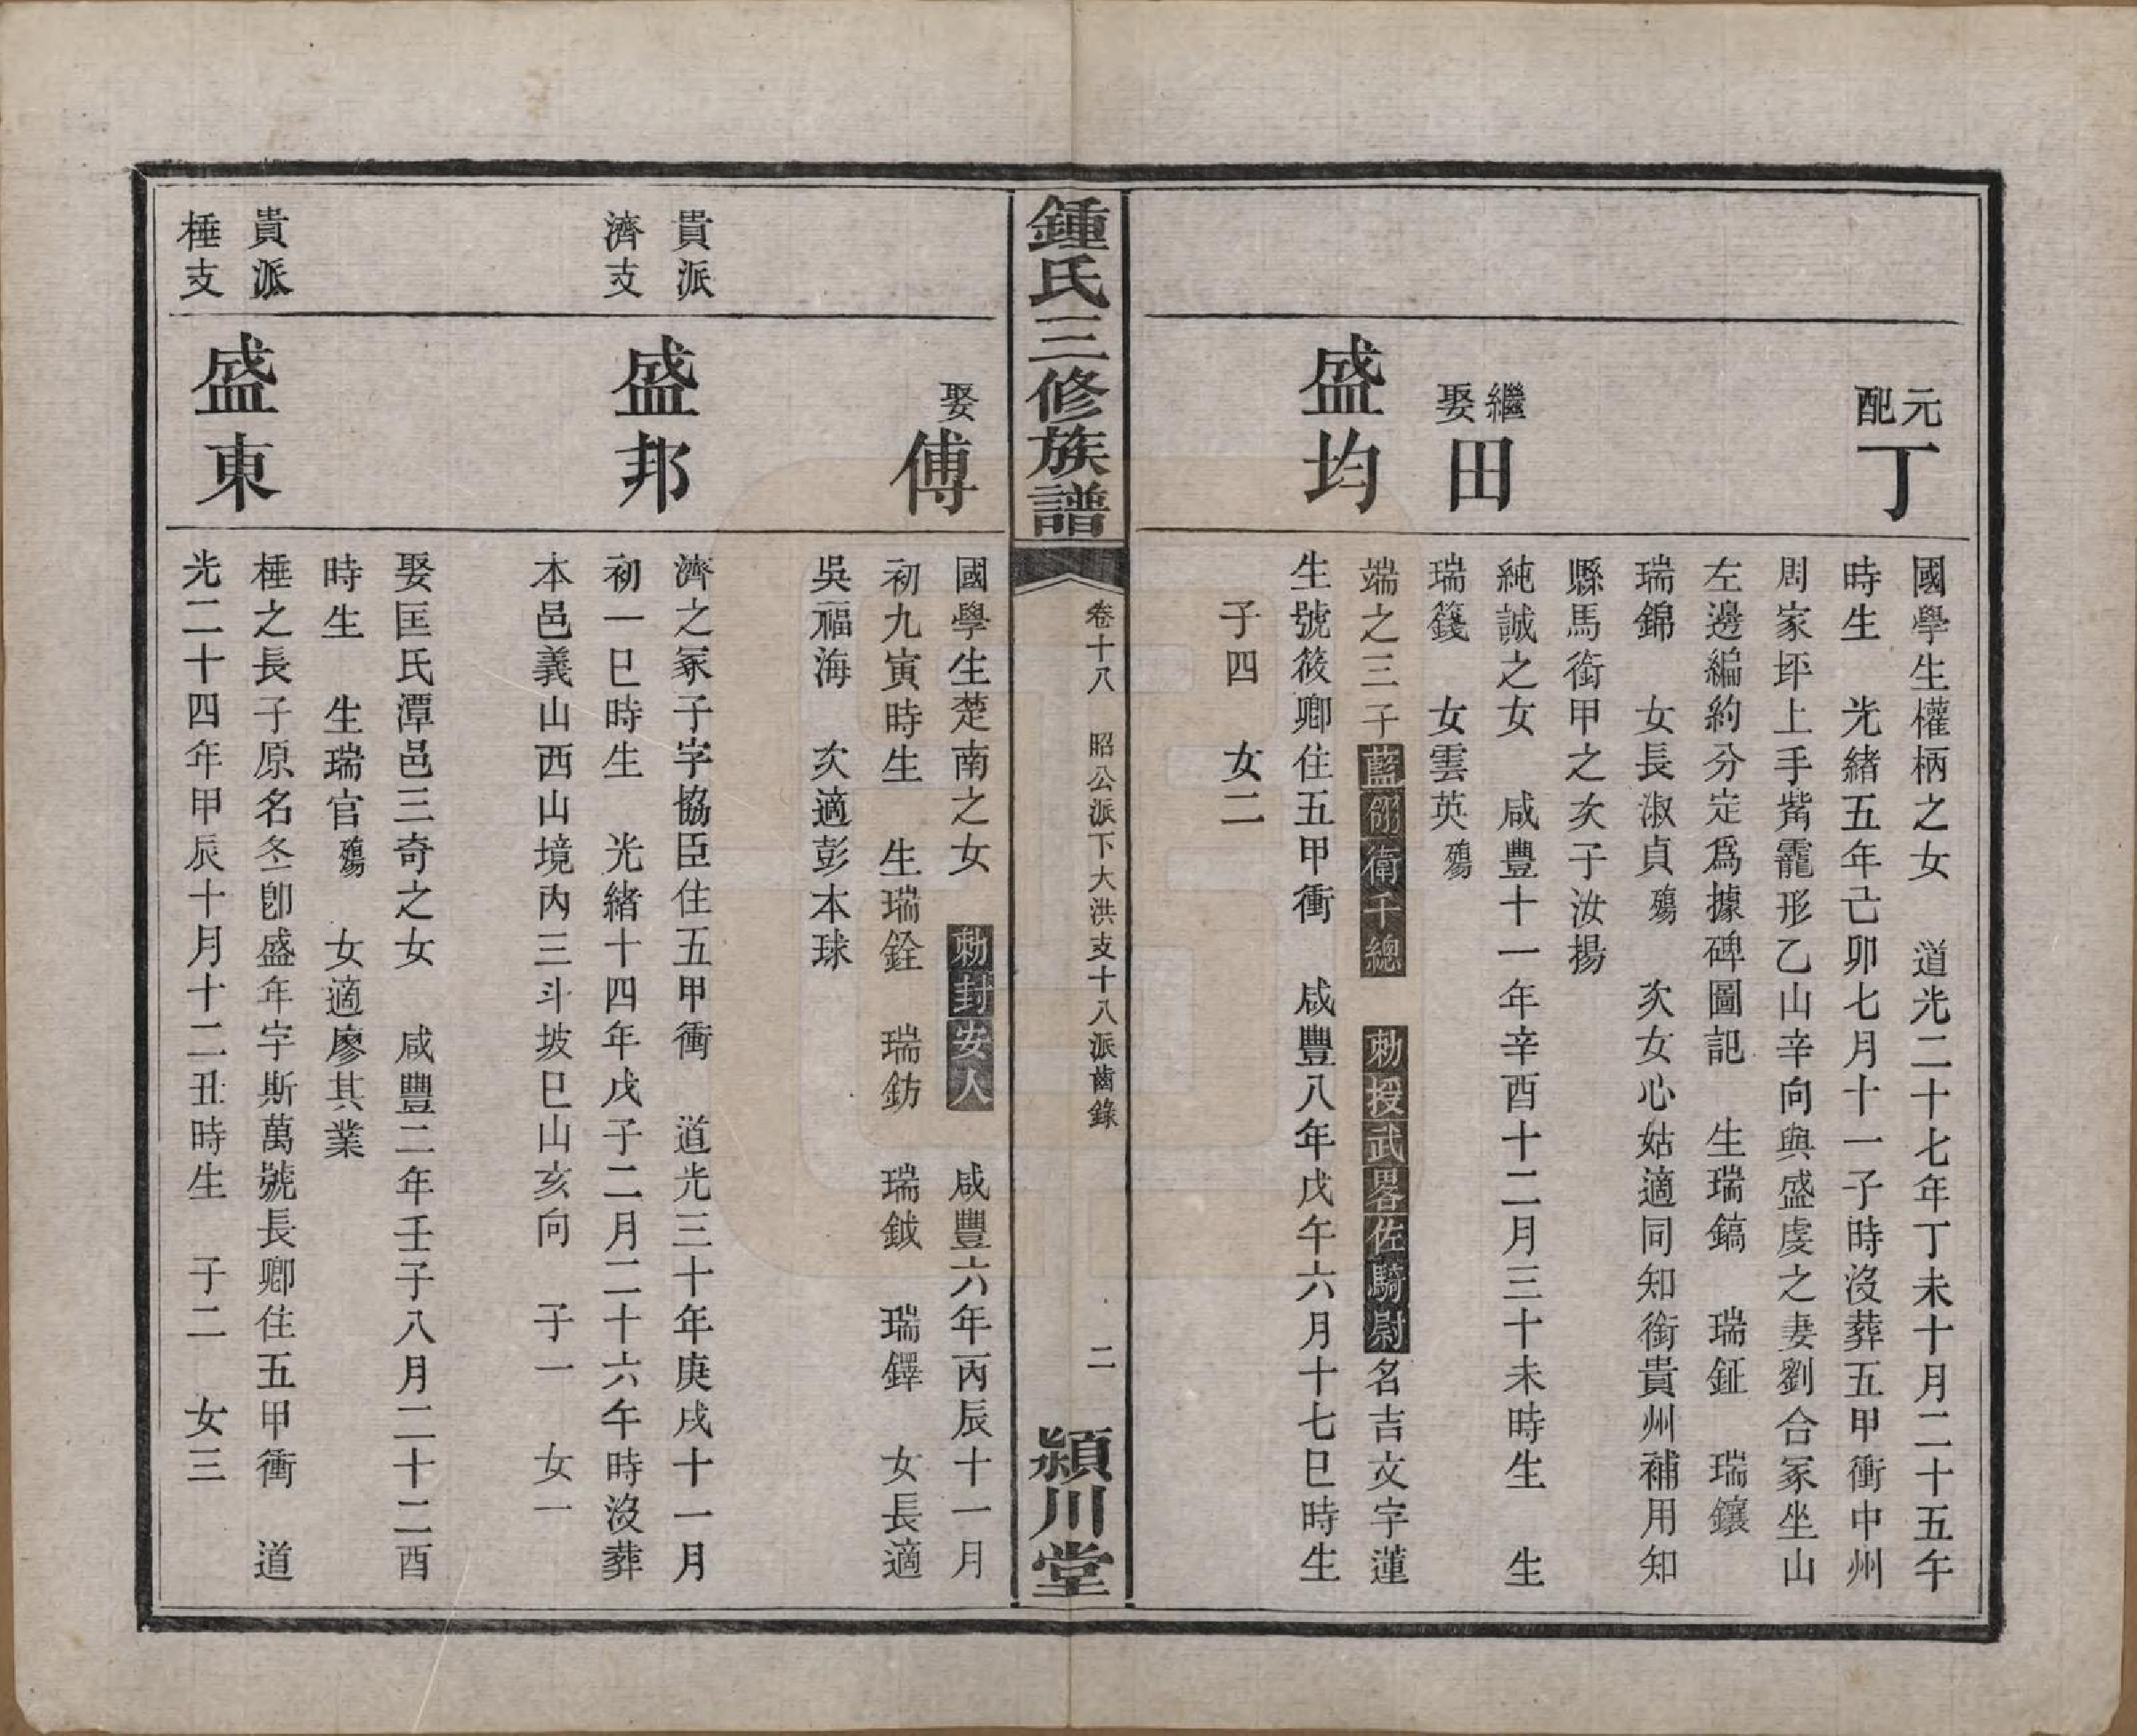 元配
丁
國學生權柄之女　道光二十七年丁未十月二十五午
時生　光緒五年己卯七月十一子時沒葬五甲衝中州
周家坪上手觜龗形乙山辛向與盛虔之妻劉合冢坐山
左邊編約分定爲據碑圖記　生瑞鎬　瑞鉦　瑞鑲
瑞錦　女長淑貞殤　次女心姑適同知銜貴州補用知
縣馬銜甲之次子汝揚
繼娶
田
純誠之女　咸豐十一年辛酉十二月三十未時生　生
瑞籛　女雲英殤
盛均
端之三子藍翎衛千總　勅授武畧佐騎尉名吉文字蓮
生號筱卿住五甲衝　咸豐八年戊午六月十七巳時生
子四　女二
鍾氏三修族譜
卷十八　昭公派下大洪支十八派齒錄
二
潁川堂
娶
傅
國學生楚南之女　勅封安人　咸豐六年丙辰十一月
初九寅時生　生瑞銓　瑞鈁　瑞鉞　瑞鐸　女長適
吳福海　次適彭本球
貴派
濟支
盛邦
濟之冢子字協臣住五甲衝　道光三十年庚戌十一月
初一巳時生　光緒十四年戊子二月二十六午時沒葬
本邑義山西山境內三斗坡巳山亥向　子一　女一
娶匡氏潭邑三奇之女　咸豐二年壬子八月二十二酉
時生　生瑞官殤　女適廖其業
貴派
棰支
盛東
棰之長子原名冬卽盛年字斯萬號長卿住五甲衝　道
光二十四年甲辰十月十二丑時生　子二　女三